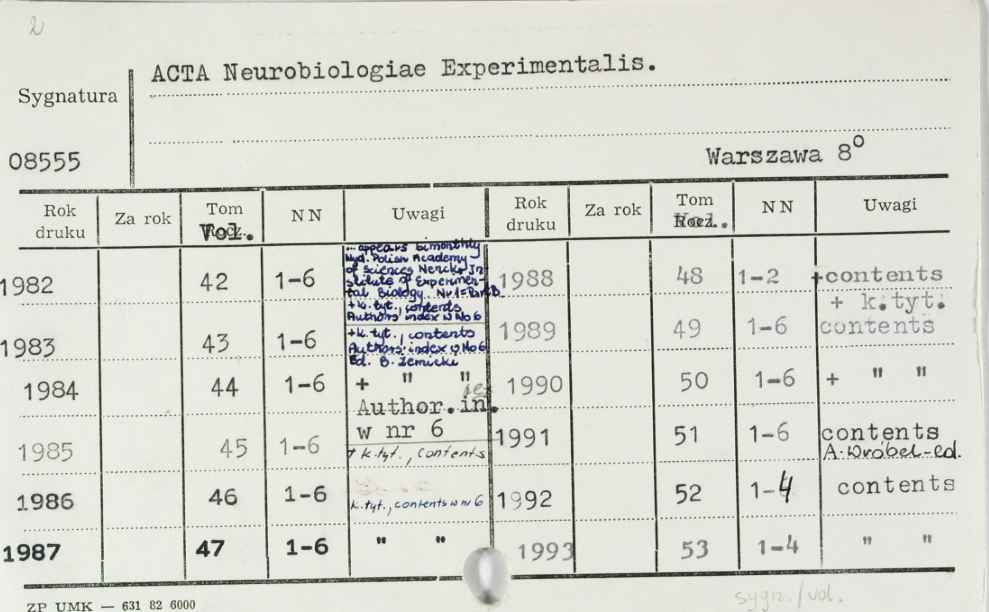 2
ACTA Neurobiologiae Experimentalis.
Sygnatura
08555
Warszawa 8o
Rok druku Za rok Tom Vol. NN Uwagi Rok druku Za rok Tom Vol. NN Uwagi
... appears bimonthly
Wyd. Polish Academy
of Sciences Nencki In
stitute of Experimen-
tal Biology. Nr 1=Part B
+k.tyt., contents
Authors index w No 6
1982 42 1-6
1988 48 1-2 +contents
+ k.tyt.
1983 43 1-6
+k.tyt., contents
Authors index w No 6
Ed. B. Zernicki
1989 49 1-6 contents
1984 44 1-6 + " "
Author. in.
w nr 6
1990 50 1-6 + " "
1985 45 1-6 + k.tyt., contents
1991 51 1-6 contents
A. Wróbel-ed.
1986 46 1-6 k.tyt., contents w nr 6
1992 52 1-4 contents
1987 47 1-6 " "
1993 53 1-4 " "
ZP UMK — 631 82 6000
sygn./vol.